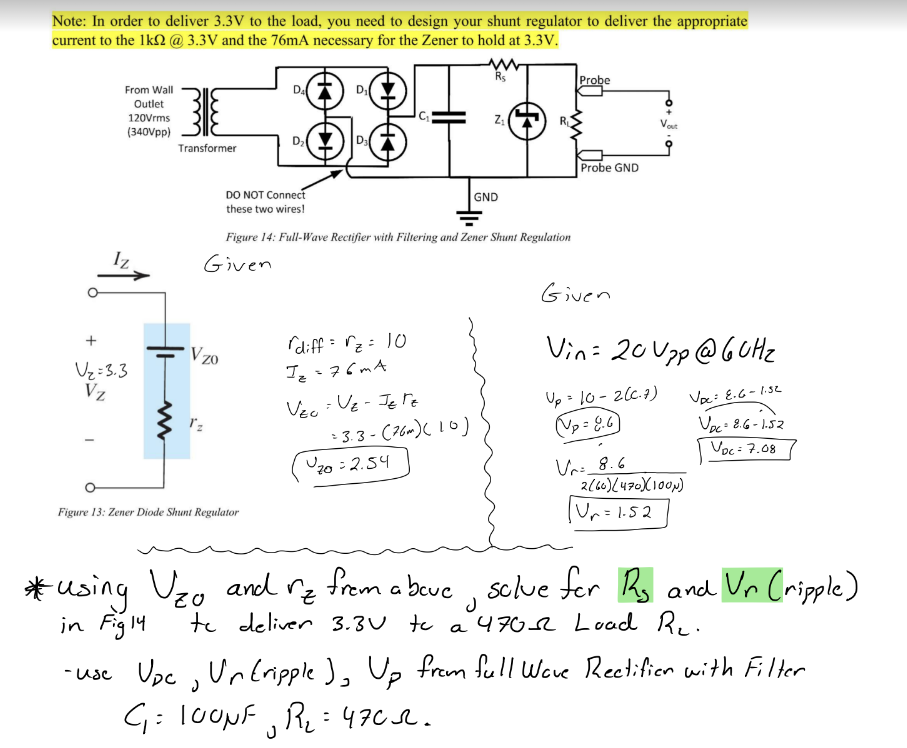 Note: In order to deliver 3.3V to the load, you need to design your shunt regulator to deliver the appropriate
current to the 1kΩ @ 3.3V and the 76mA necessary for the Zener to hold at 3.3V.
From Wall
Outlet
120Vrms
(340Vpp)
Transformer
D4
D1
D2
D3
C1
Rs
Z1
RL
Probe
+
Vout
-
Probe GND
DO NOT Connect
these two wires!
GND
Figure 14: Full-Wave Rectifier with Filtering and Zener Shunt Regulation
IZ
+
Vz=3.3
VZ
–
VZ0
rz
Figure 13: Zener Diode Shunt Regulator
Given
rdiff = rz = 10
Iz = 76mA
Vzo = Vz - Iz rz
= 3.3 - (76m)(10)
Vzo = 2.54
Given
Vin = 20 Vpp @ 60Hz
Vp = 10 - 2(0.7)
Vp = 8.6
Vr = 8.6
2(60)(470)(100μ)
Vr = 1.52
VDC = 8.6 - 1.52
VDC = 8.6 - 1.52
VDC = 7.08
* using Vzo and rz from above, solve for Rs and Vr (ripple)
in Fig 14 to deliver 3.3V to a 470Ω Load RL.
- use VDC, Vr (ripple), Vp from full Wave Rectifier with Filter
C1 = 100μF, RL = 470Ω.